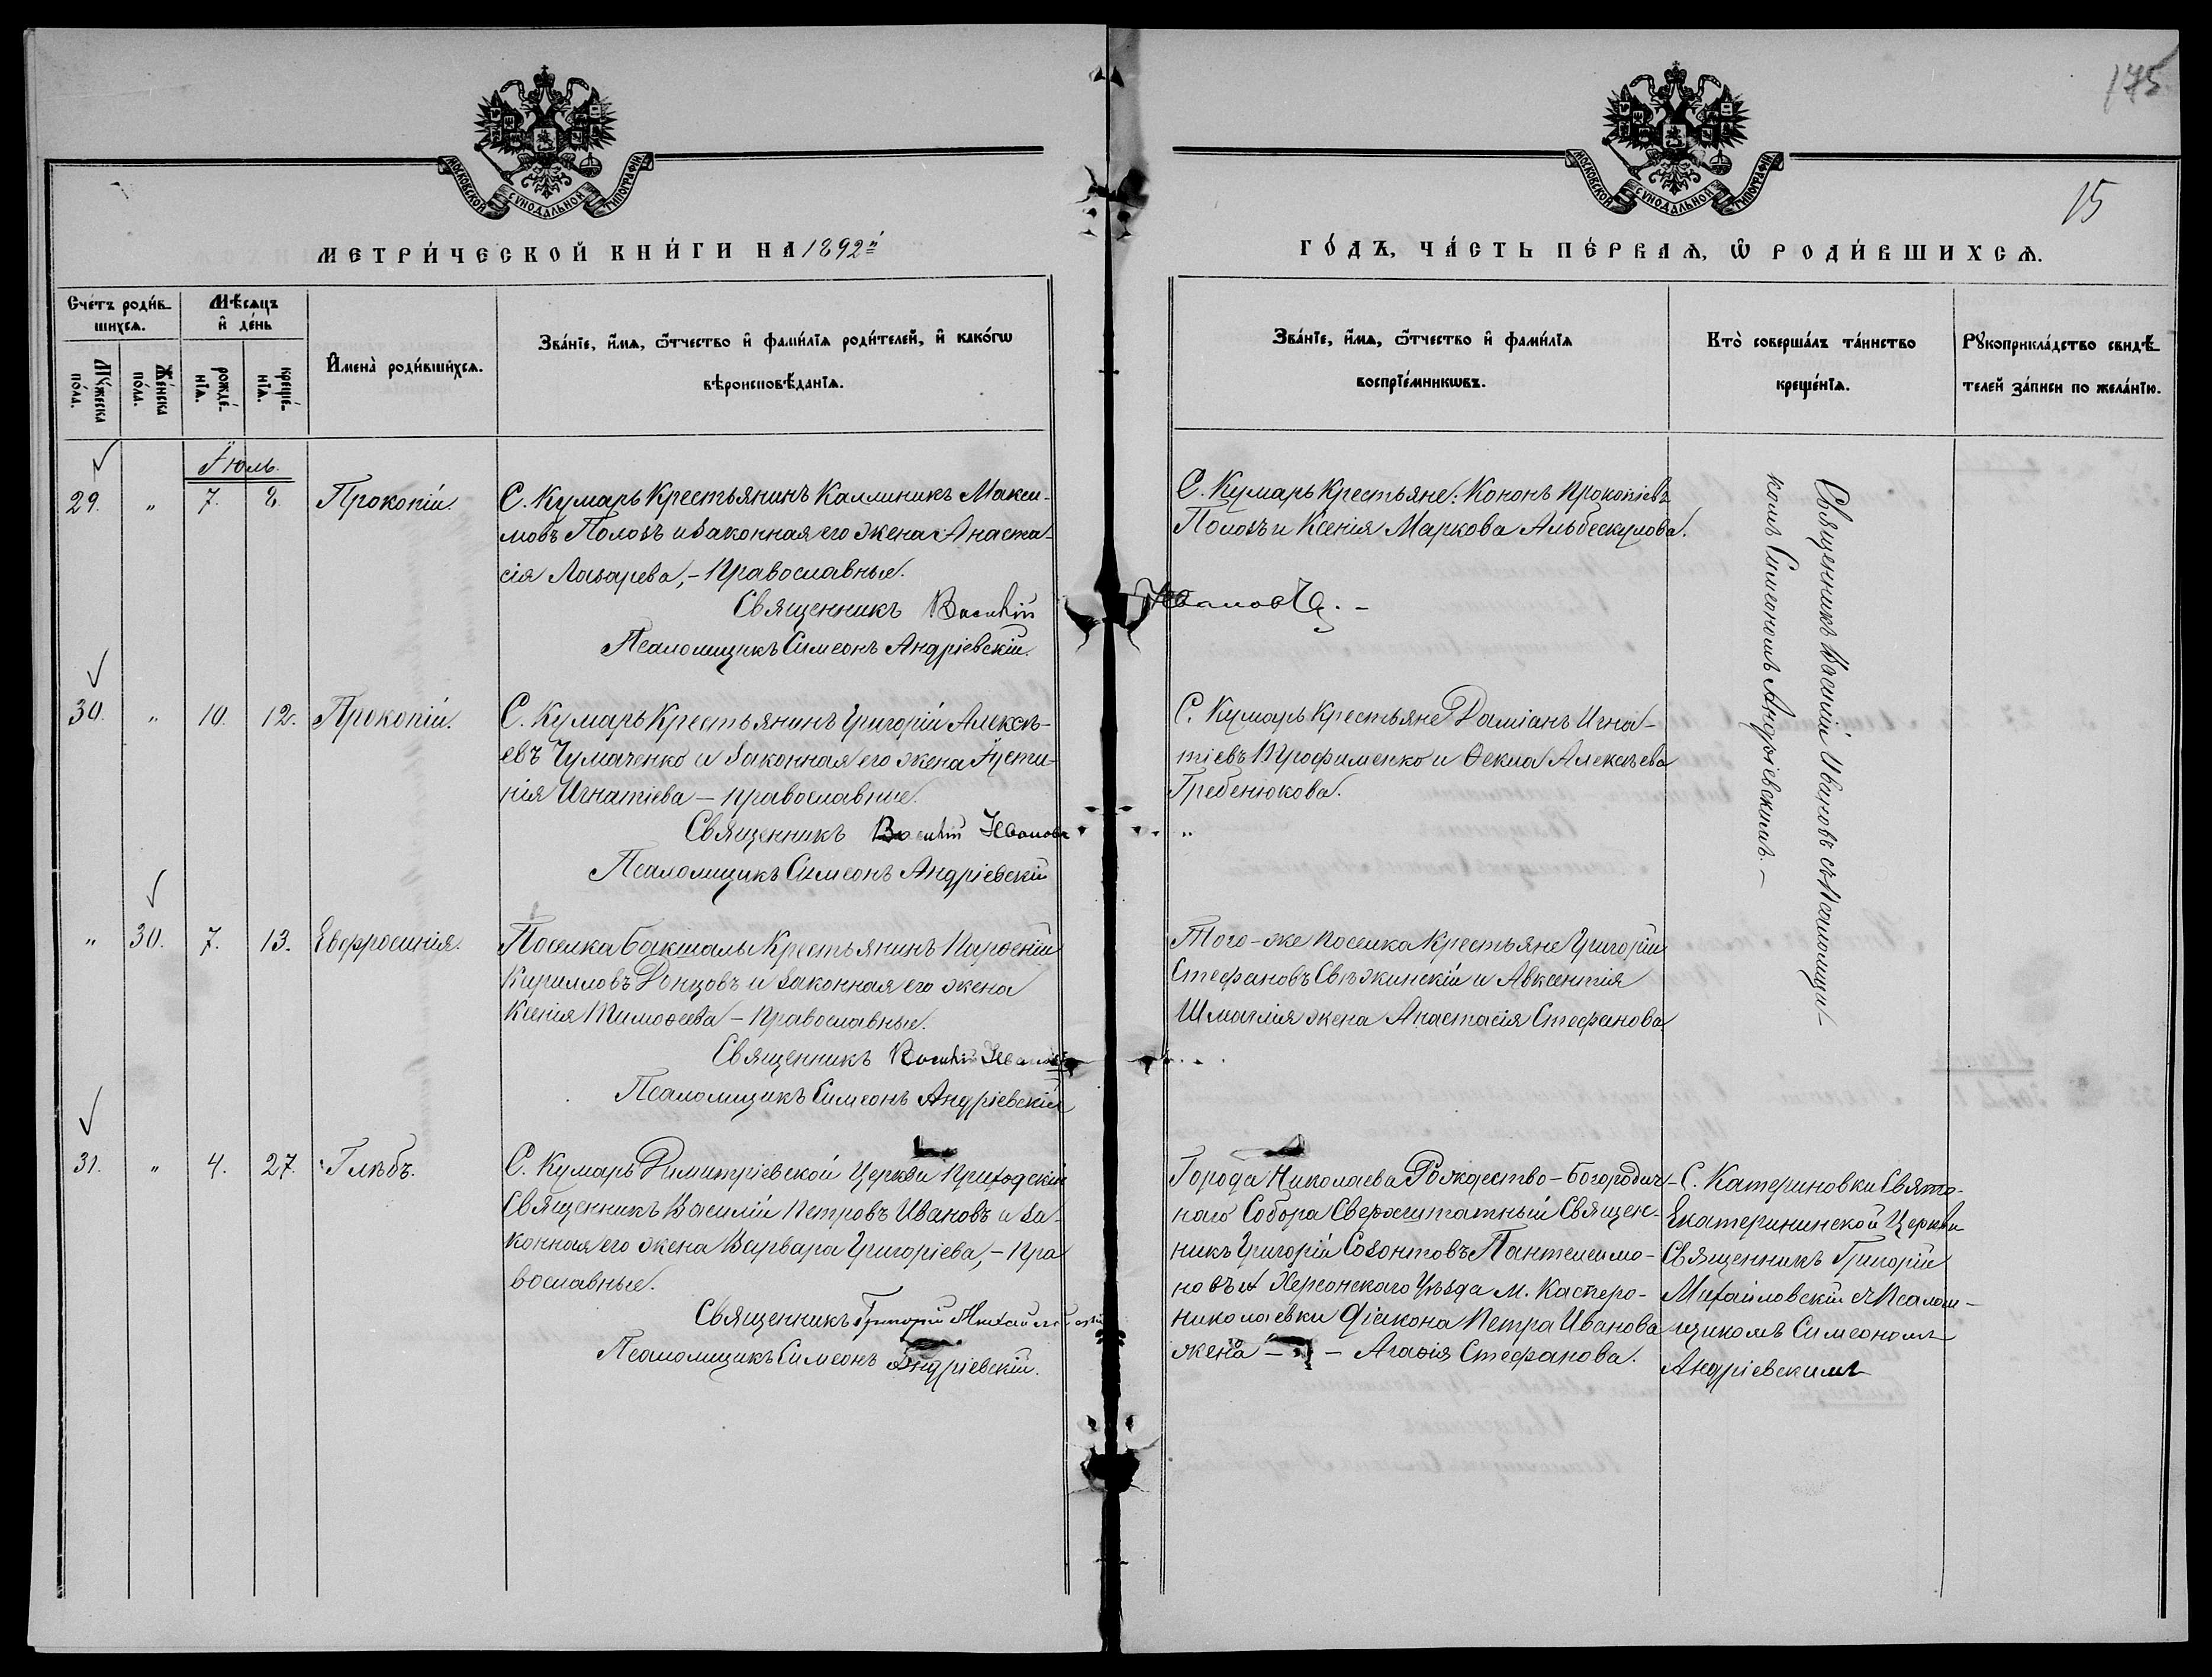 175
15
МОСКОВСКОЙ СѴНОДАЛЬНОЙ ТИПОГРАФІИ
МОСКОВСКОЙ СѴНОДАЛЬНОЙ ТИПОГРАФІИ
МЕТРИ́ЧЕСКОЙ КНИ́ГИ НА 1892й
ГО́ДЪ, ЧА́СТЬ ПЕ́РВАѦ, Ѡ҆ РОДИ́ВШИХСѦ.
Сче́тъ роди́в-
шихсѧ.
Мѣ́сѧцъ
и҆ де́нь
Мꙋ́жеска по́ла.
Же́нска по́ла.
рожде́-
нїѧ.
креще́-
нїѧ.
И҆мена̀ роди́вшихсѧ.
Зва́нїе, и҆́мѧ, ѻ҆́тчество и҆ фами́лїѧ роди́телей, и҆ како́гѡ
вѣроисповѣ́данїѧ.
Зва́нїе, и҆́мѧ, ѻ҆́тчество и҆ фами́лїѧ
воспрїе́мникѡвъ.
Кто̀ соверша́лъ та́инство
креще́нїѧ.
Рꙋкоприкла́дство свидѣ́-
телей за́писи по жела́нїю.
Іюль.
29. " 7. 8. Прокопій.
С. Кумарь Крестьянинъ Каллиникъ Макси-
мовъ Полозъ и законная его жена Анаста-
сія Лазарева, - православные.
Священникъ Василій Ивановъ. -
Псаломщикъ Симеонъ Андріевскій.
С. Кумарь Крестьяне: Кононъ Прокопіевъ
Полозъ и Ксенія Маркова Альбескулова.
Священникъ Василій Ивановъ съ Псаломщи-
комъ Симеономъ Андріевскимъ. -
30. " 10. 12. Прокопій.
С. Кумарь Крестьянинъ Григорій Алексѣ-
евъ Чумаченко и законная его жена Іусти-
нія Игнатіева - православные.
Священникъ Василій Ивановъ
Псаломщикъ Симеонъ Андріевскій
С. Кумарь Крестьяне Даміанъ Игна-
тіевъ Трофименко и Ѳекла Алексѣева
Гребенюкова.
"
" 30. 7. 13. Евфросинія.
Поселка Бакшалы Крестьянинъ Парѳеній
Кирилловъ Донцовъ и законная его жена
Ксенія Тимоѳеева - православные.
Священникъ Василій Ивановъ
Псаломщикъ Симеонъ Андріевскій
Того-же поселка Крестьяне Григорій
Стефановъ Свѣжинскій и Авксентія
Шмаглія жена Анастасія Стефанова
31. " 4. 27. Глѣбъ.
С. Кумарь Димитріевской Церкви Приходскій
Священникъ Василій Петровъ Ивановъ и за-
конная его жена Варвара Григоріева, - пра
вославные.
Священникъ Григорій Михайловскій
Псаломщикъ Симеонъ Андріевскій.
Города Николаева Рождество-Богородич-
наго Собора Сверхштатный Священ-
никъ Григорій Созонтовъ Пантелеимо-
новъ и Херсонскаго Уѣзда М. Кастеро-
николаевки діакона Петра Иванова
жена - - Агаѳія Стефанова.
С. Катериновки Свято-
Екатерининской Церкви
Священникъ Григорій
Михайловскій съ Псалом-
щикомъ Симеономъ
Андріевскимъ